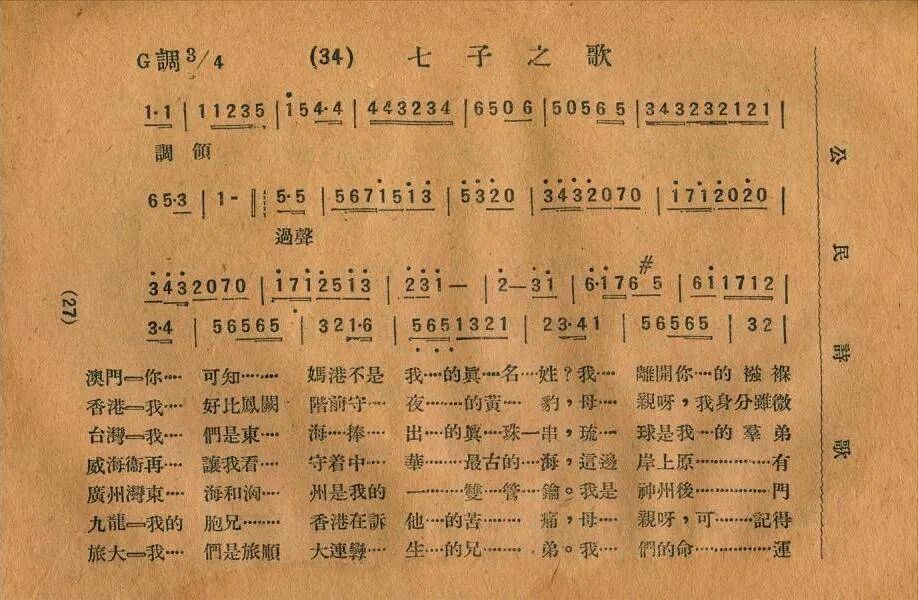 G調3/4 (34) 七子之歌
1·1 | 11235 | 154·4 | 443234 | 6506 | 50565 | 343232121 |
調領
65·3 | 1- || 5·5 | 5671513 | 5320 | 3432070 | 1712020 |
過聲
3432070 | 1712513 | 231— | 2—31 | 6·176#5 | 611712 |
3·4 | 56565 | 321·6 | 5651321 | 23·41 | 56565 | 32 |
澳門═你‥‥ 可知‥‥‥ 媽港不是 我‥‥的眞‥‥名‥‥姓?我‥‥ 離開你‥‥的 襁褓
香港═我‥‥ 好比鳳闕 階前守‥‥ 夜‥‥‥的黃‥‥ 豹,母‥‥ 親呀,我身分雖微
台灣═我‥‥ 們是東‥‥ 海‥‥捧‥‥ 出‥‥的眞‥‥珠一串,琉‥‥ 球是我‥‥的 羣弟
威海衞再‥‥ 讓我看‥‥ 守着中‥‥ 華‥‥‥最古的‥‥海,這邊 岸上原‥‥‥‥有
廣州灣東‥‥ 海和洶‥‥ 州是我的 一‥‥‥雙‥‥管‥‥鑰。我是 神州後‥‥‥‥門
九龍═我的 胞兄‥‥‥ 香港在訴 他‥‥的苦‥‥‥痛,母‥‥ 親呀,可‥‥記得
旅大═我‥‥ 們是旅順 大連孿‥‥ 生‥‥的兄‥‥‥弟。我‥‥ 們的命‥‥‥‥運
公民詩歌
(27)